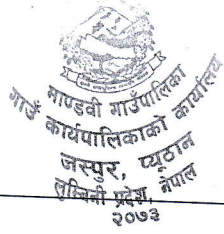 माण्डवी गाउँपालिका
गाउँ कार्यपालिकाको कार्यालय
जस्पुर, प्यूठान
लुम्बिनी प्रदेश, नेपाल
२०७३